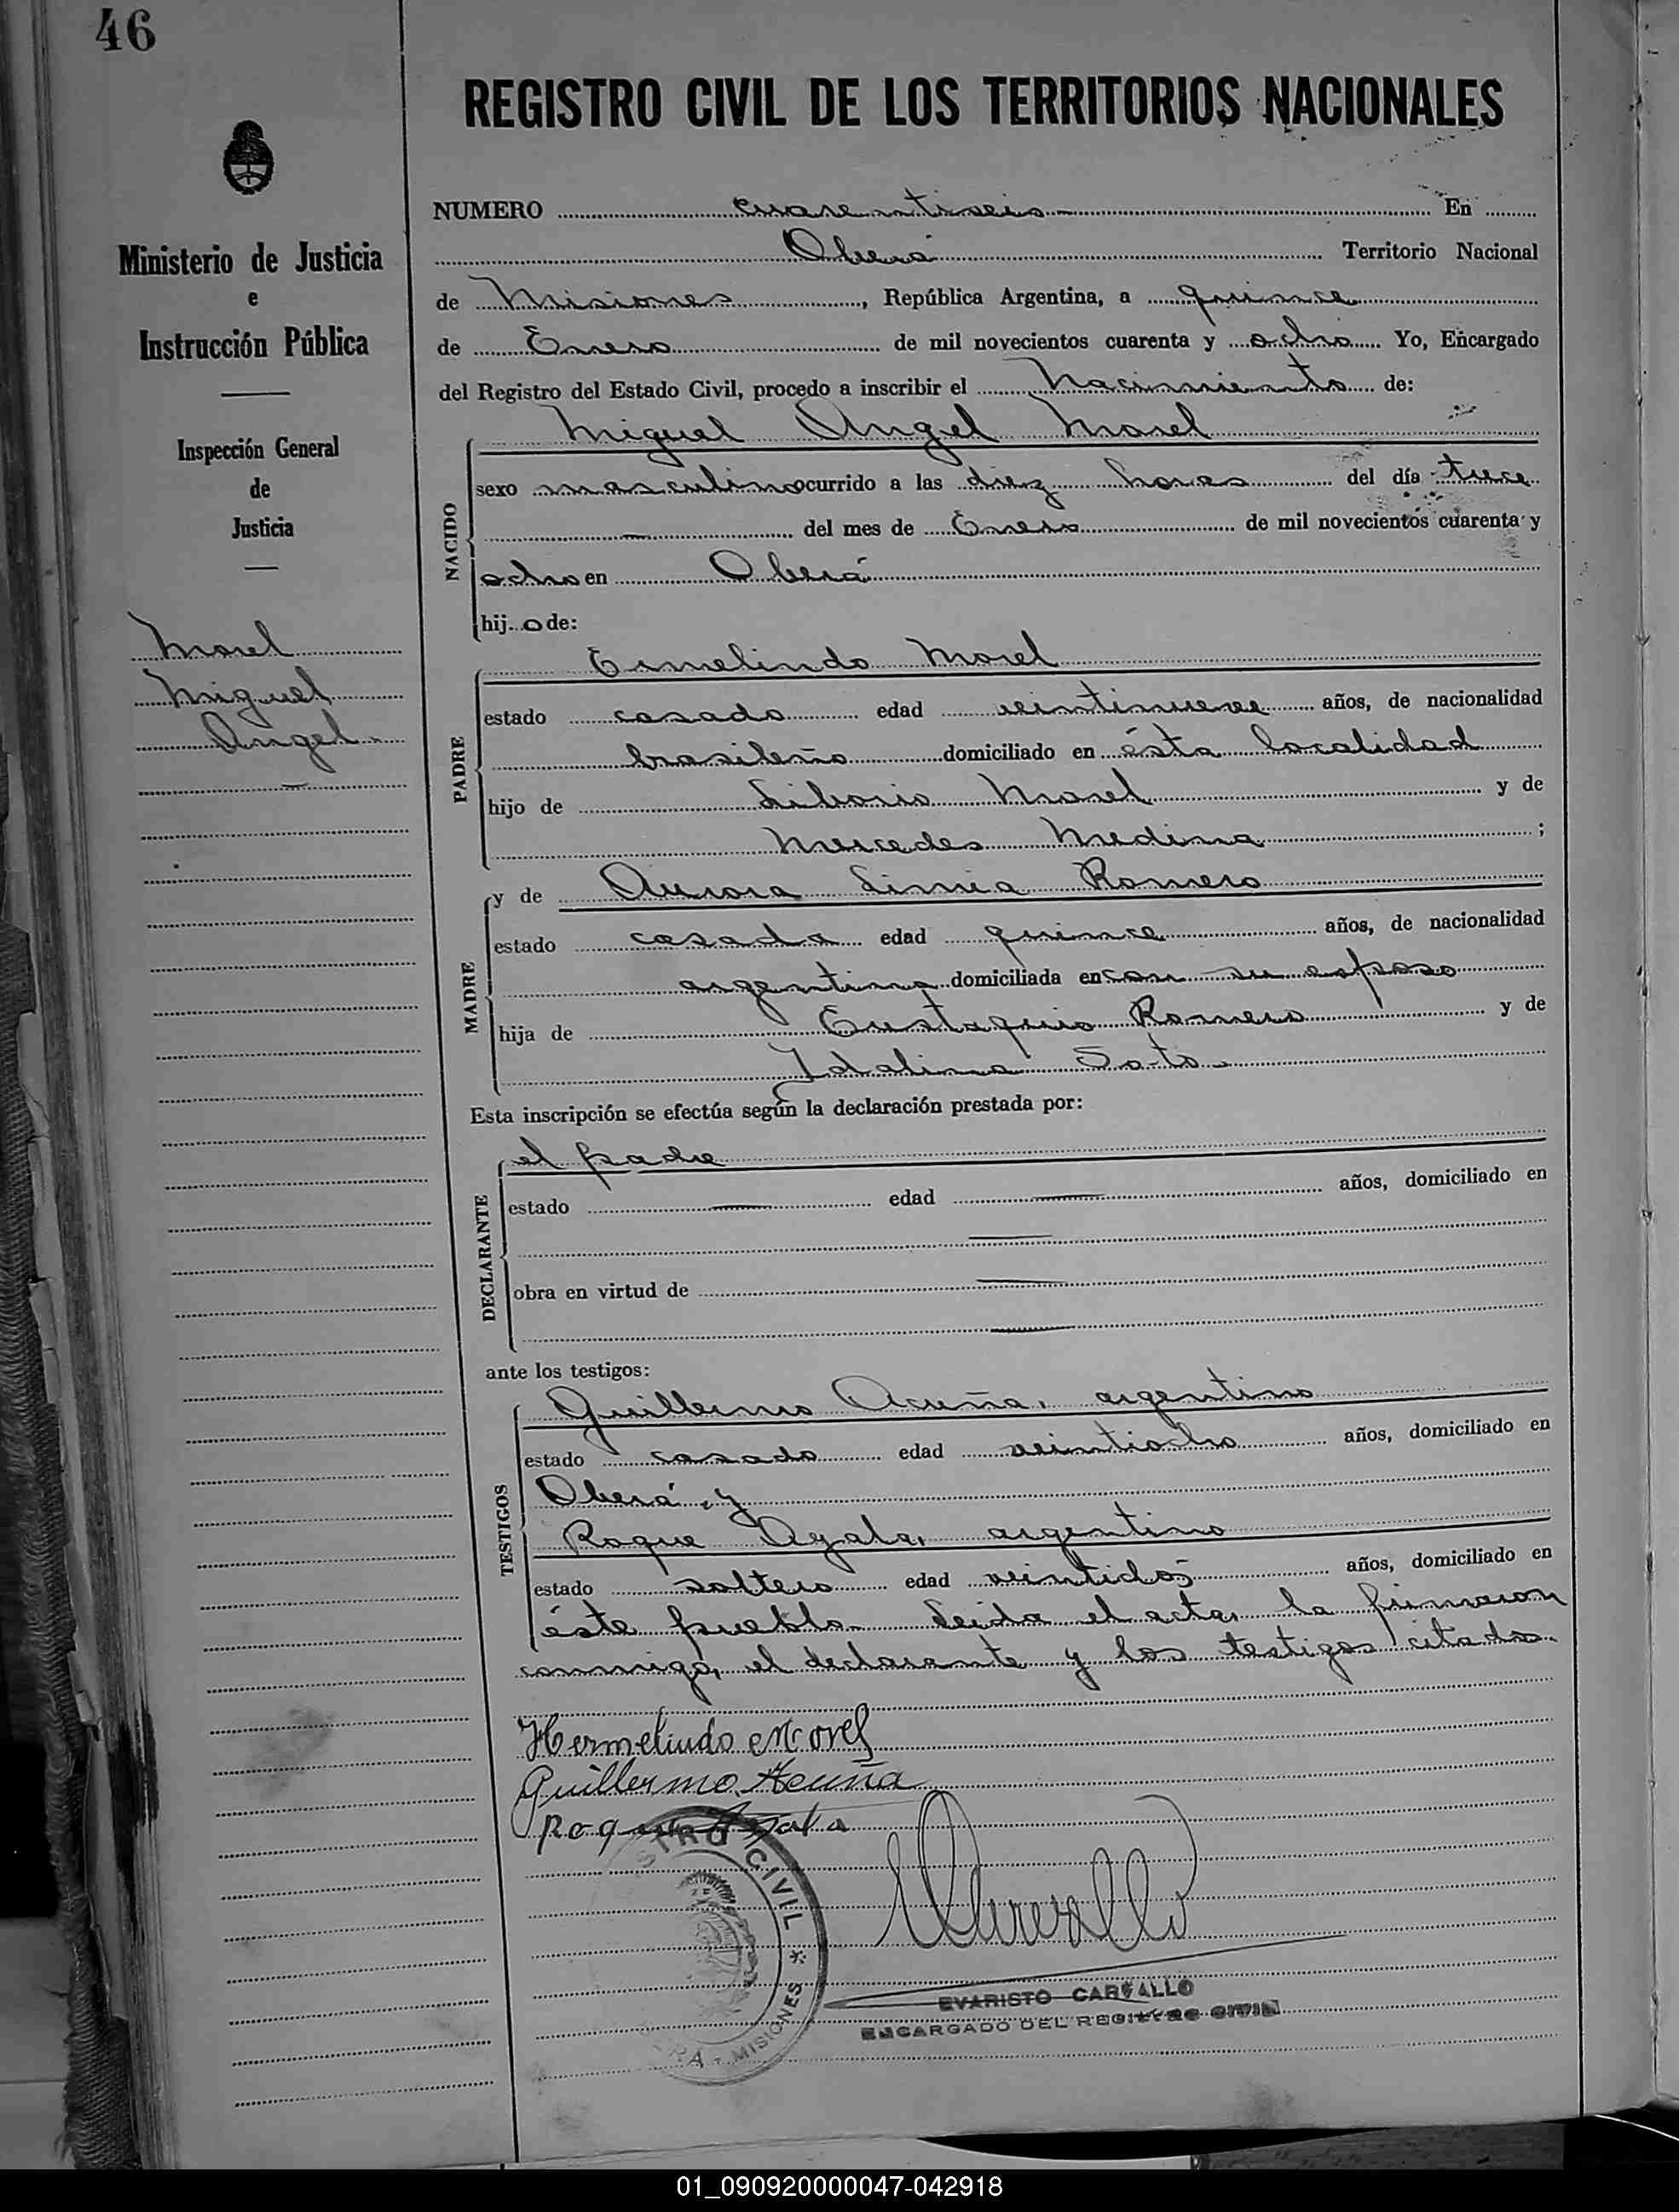 46
REGISTRO CIVIL DE LOS TERRITORIOS NACIONALES
Ministerio de Justicia
e
Instrucción Pública
Inspección General
de
Justicia
Morel
Miguel
Angel
NUMERO cuarentiseis En
Oberá Territorio Nacional
de Misiones, República Argentina, a quince
de Enero de mil novecientos cuarenta y ocho Yo, Encargado
del Registro del Estado Civil, procedo a inscribir el Nacimiento de:
NACIDO
Miguel Angel Morel
sexo masculino ocurrido a las diez horas del día trece
del mes de Enero de mil novecientos cuarenta y
ocho en Oberá
hijo de:
PADRE
Ermelindo Morel
estado casado edad veintinueve años, de nacionalidad
brasileño domiciliado en ésta localidad
hijo de Liborio Morel y de
Mercedes Medina ;
MADRE
y de Aurora Romero
estado casada edad quince años, de nacionalidad
argentina domiciliada en con su esposo
hija de Eustaquio Romero y de
Idalina Soto
Esta inscripción se efectúa según la declaración prestada por:
DECLARANTE
el padre
estado edad años, domiciliado en
obra en virtud de
ante los testigos:
TESTIGOS
Guillermo Acuña, argentino
estado casado edad veintiocho años, domiciliado en
Oberá, y
Roque Ayala, argentino
estado soltero edad veintidós años, domiciliado en
éste pueblo. Leida el acta, la firmaron
conmigo, el declarante y los testigos citados.
Hermelindo Morel
Guillermo Acuña
Roque Ayala
CIVIL * MISIONES
EVARISTO CARVALLO
ENCARGADO DEL REGISTRO CIVIL
01_090920000047-042918